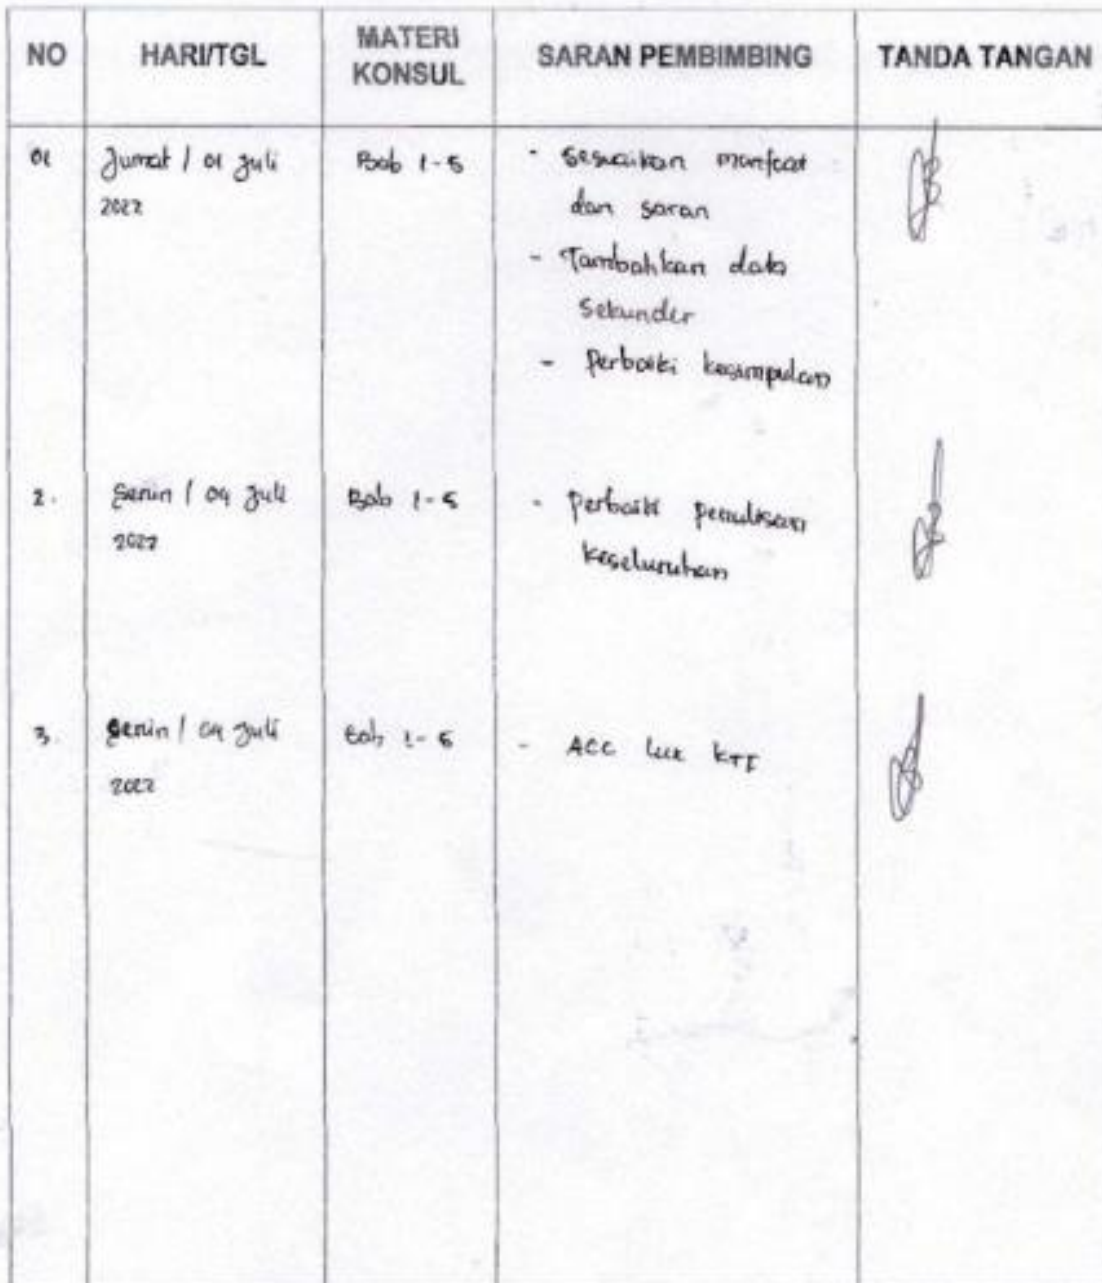 NO HARI/TGL MATERI KONSUL SARAN PEMBIMBING TANDA TANGAN
01 Jumat / 01 Juli 2022 Bab 1-5 - Sesuaikan manfaat
dan saran
- Tambahkan data
sekunder
- Perbaiki kesimpulan
2. Senin / 04 Juli 2022 Bab 1-5 - Perbaiki penulisan
keseluruhan
3. Senin / 04 Juli 2022 Bab 1-5 - ACC KTI